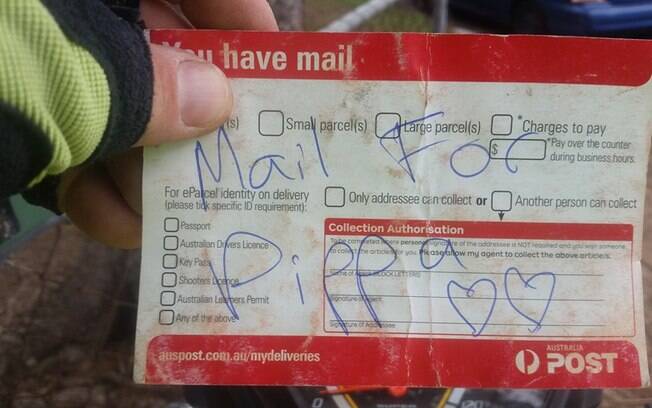 You have mail
(s) Small parcel(s) Large parcel(s) *Charges to pay
$ *Pay over the counter
during business hours.
Mail For
For eParcel identity on delivery
(please tick specific ID requirement):
Only addressee can collect or Another person can collect
Passport
Australian Drivers Licence
Key Pass
Shooters Licence
Australian Learners Permit
Any of the above
Collection Authorisation
To be completed where personal signature of the addressee is NOT required and you wish someone
to collect the article/s for you. Please allow my agent to collect the above article/s.
Name of Agent BLOCK LETTERS
Signature of Agent
Signature of Addressee
Pippa
auspost.com.au/mydeliveries
AUSTRALIA
POST